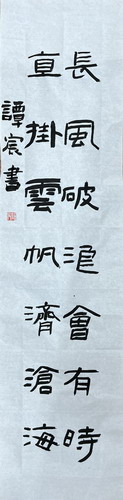 長風破浪會有時
直掛雲帆濟滄海
譚宸書